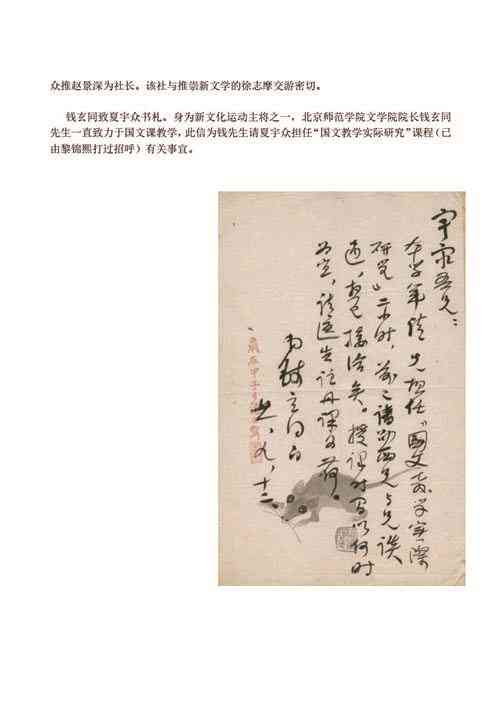 众推赵景深为社长。该社与推崇新文学的徐志摩交游密切。
钱玄同致夏宇众书札。身为新文化运动主将之一，北京师范学院文学院院长钱玄同
先生一直致力于国文课教学，此信为钱先生请夏宇众担任“国文教学实际研究”课程（已
由黎锦熙打过招呼）有关事宜。
宇众吾兄：
本学年请兄担任「国文教学实际
研究」二小时，前已请劭西兄与兄谈
过，想已接洽矣。授课时间以何时
为宜，请迳告注册课为荷。
弟钱玄同白
廿、九、十二、